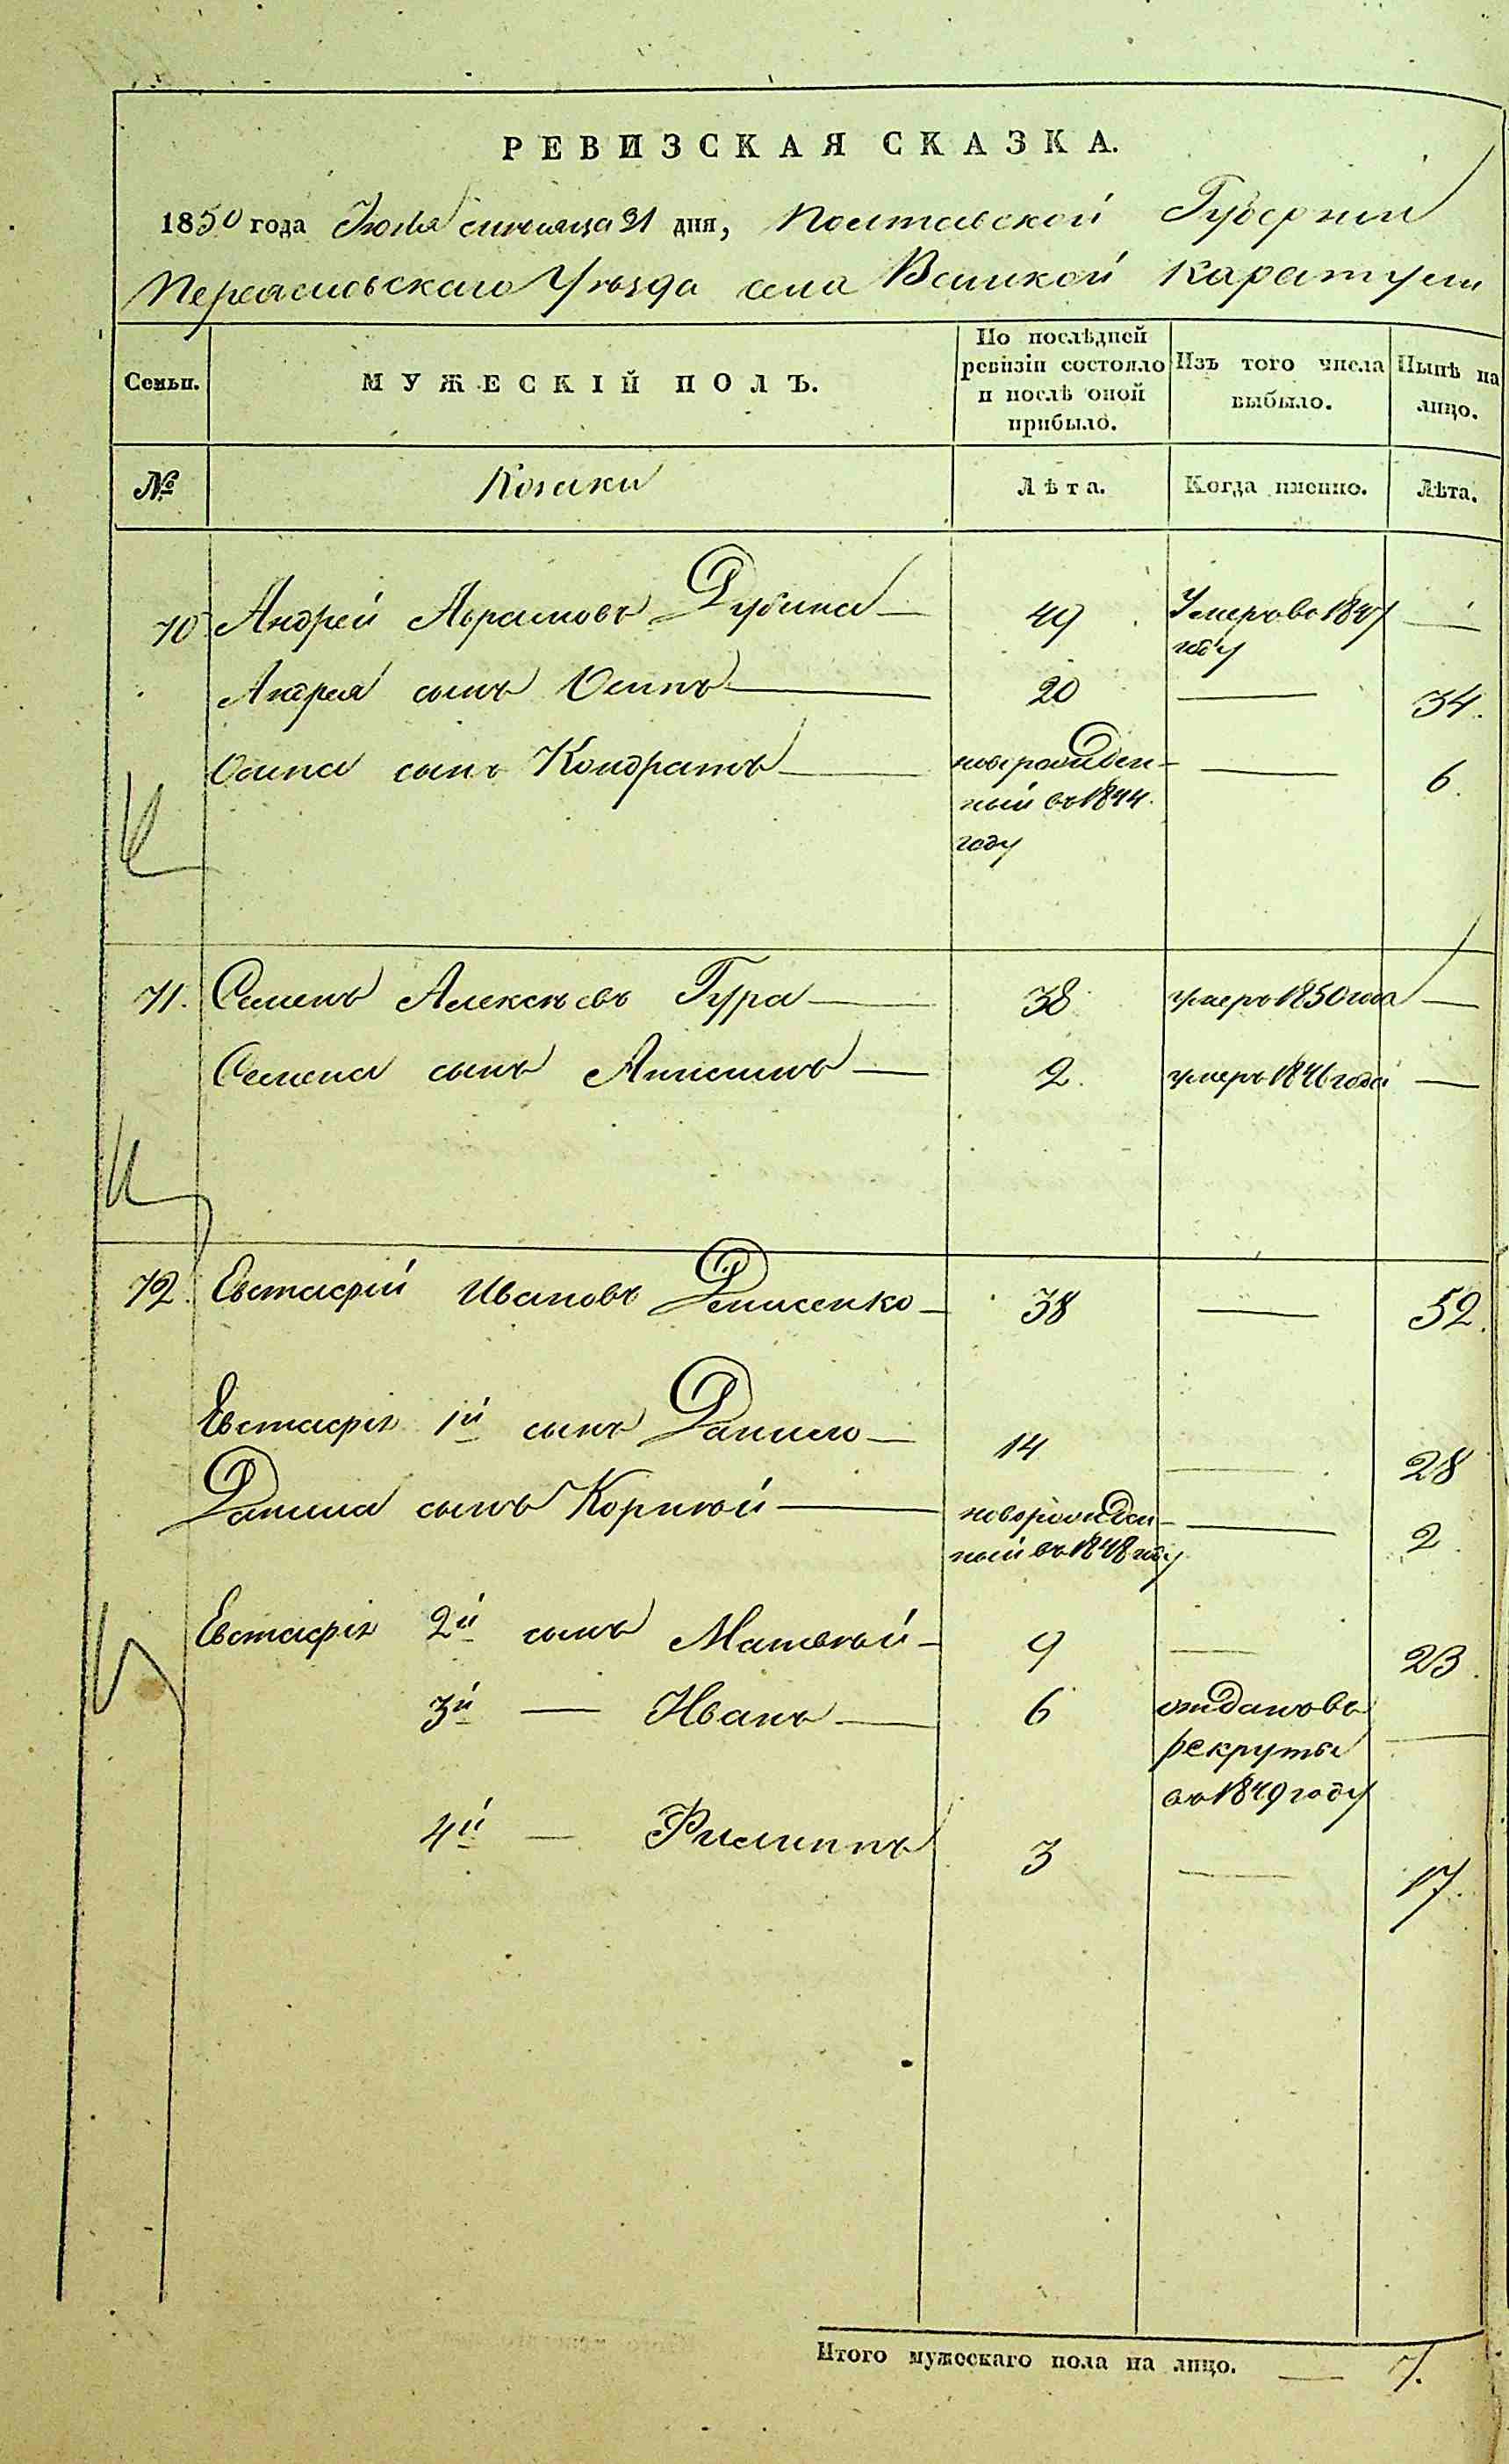 РЕВИЗСКАЯ СКАЗКА.
1850 года Іюля мѣсяца 31 дня, Полтавской Губерніи
Переяславскаго Уѣзда села Великой Каратули
Семьи.
МУЖЕСКІЙ ПОЛЪ.
По послѣдней ревизіи состояло и послѣ оной прибыло.
Изъ того числа выбыло.
Нынѣ на лицо.
№
Козаки
Лѣта.
Когда именно.
Лѣта.
70 Андрей Аврамовъ Дубина — 49 Умеръ въ 1847 —
году
Андрея сынъ Осипъ — 20 — 34.
Осипа сынъ Кондратъ — новорожден- — 6.
ный въ 1844.
году
71. Семенъ Алексѣевъ Гура — 38 умеръ 1850 года —
Семена сынъ Анисимъ — 2. умеръ 1846 года —
72. Евстафій Ивановъ Денисенко — 38 — 52.
Евстафія 1й сынъ Данило — 14 — 28
Данила сынъ Корнѣй — новорожден- — 2
ный въ 1848 году
Евстафія 2й сынъ Матвѣй — 9 — 23.
3й — Иванъ — 6 отданъ въ —
рекруты
въ 1849 году
4й — Филиппъ 3 — 17.
Итого мужескаго пола на лицо. — 7.